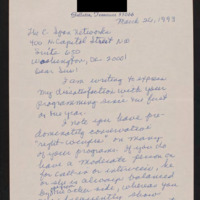 March 20, 1993
The C Span Networks
400 N Capitol Street NW
Suite 650
Washington, DC 20001
Dear Sirs:
I am writing to express
my dissatisfaction with your
programming since the first
of the year.
I note you have pre-
dominately conservative
"right-wingers" on many
of your programs. If you do
have a moderate person on
for call-in or interviews, it
is always balanced
other side, whereas you
show